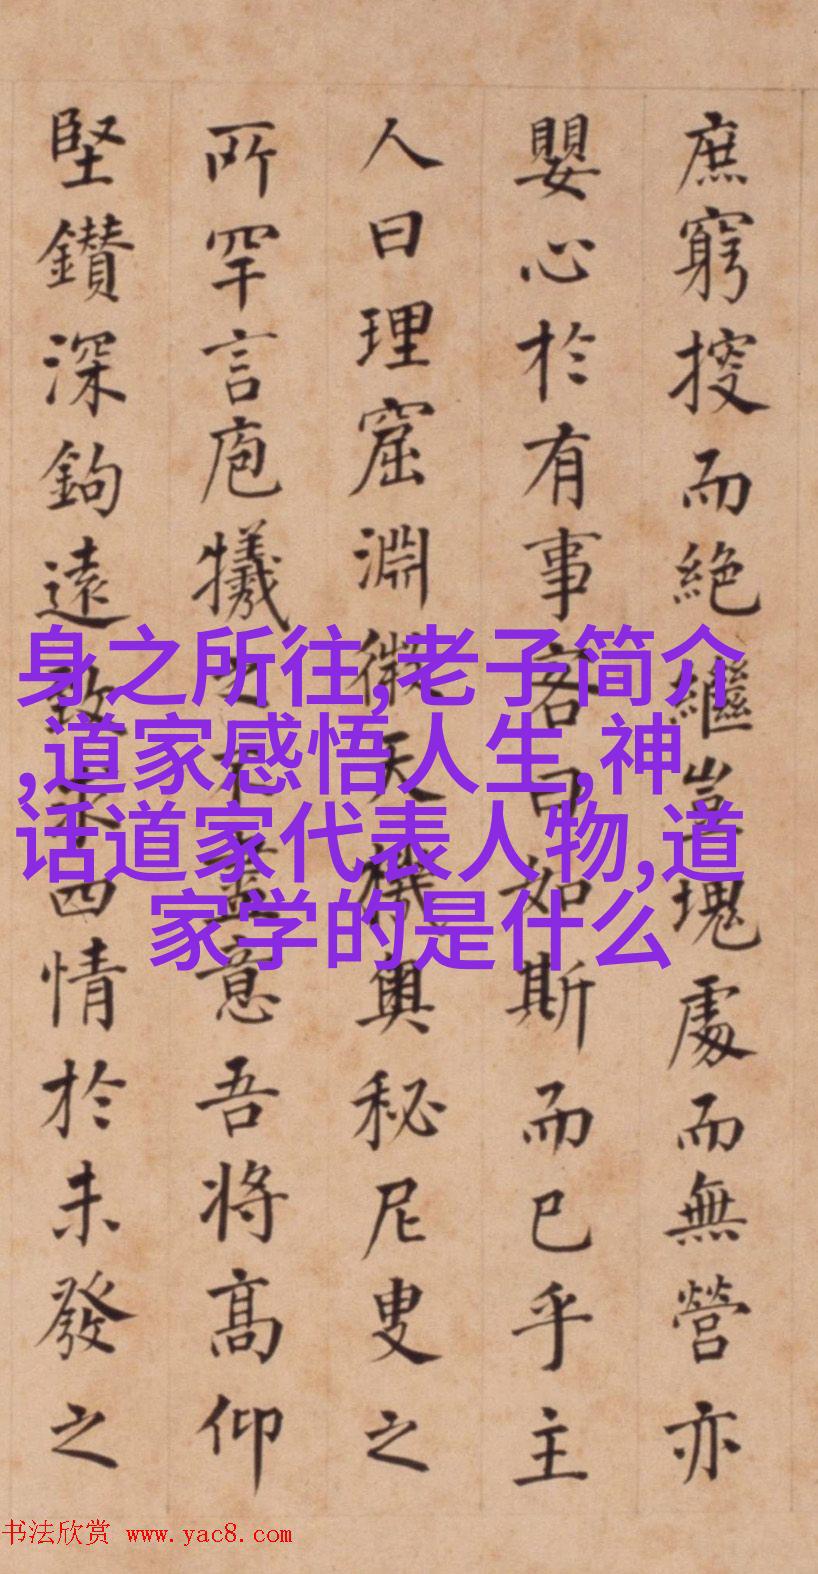 庶窮而絶繼豈塊處而無營亦
嬰心於有事客曰如斯而已乎主
人曰理窟淵微天機奧秘尼叟之
所罕言庖犧之不盡意吾将髙仰
堅鑽深鉤遠致四情於未發之
身之所往,老子简介
,道家感悟人生,神
话道家代表人物,道
家学的是什么
书法欣赏 www.yac8.com